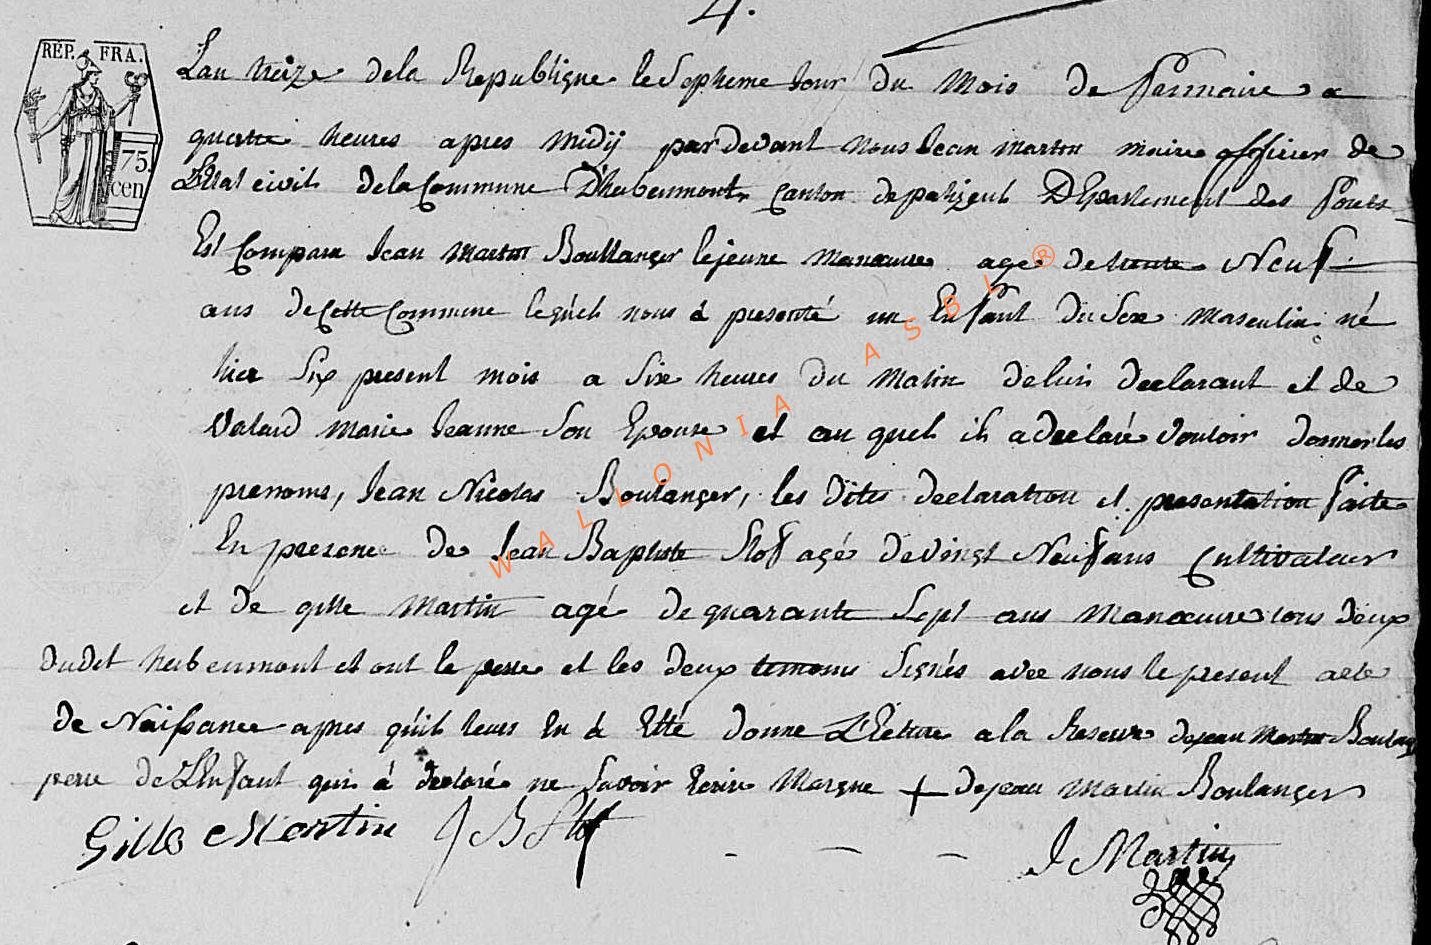 4.
RÉP. FRA.
75.
cen
L'an treize de la Republique le Septieme Jour du Mois de frimaire a
quattre heures apres midij pardevant nous Jean martin maire officier de
L'Etat civil de la Commune D'herbeumont, Canton de palizeul DEpartement des forets
Est Comparu Jean Martin Boullanger lejeune Manœuvre agé de trente Neuf
ans de Cette Commune lequ'el nous á presenté un Enfant du Sexe masculin né
hier Six present mois a Six heures du Matin de lui declarant et de
Valard Marie Jeanne Son Epouse et au quel il a declaré vouloir donner les
prenoms, Jean Nicolas Boulanger, les dites declaration et presentation faite
En presence de Jean Baptiste Slof agé de vingt Neuf ans Cultivateur
et de gille Martin agé de quarante Sept ans Manœuvre tous deux
dudit herbeumont et ont le perre et les deux temoins Signés avec nous le present acte
de Naissance apres qu'il leurs En á Etté donné L'Ecture a la Reserve de jean Martin Boulang
perre de L'Enfant qui á declaré ne Savoir Ecrire Marque + de jean Martin Boulanger
Gille Martin J B Slof - - - J Martin
WALLONIA ASBL ®